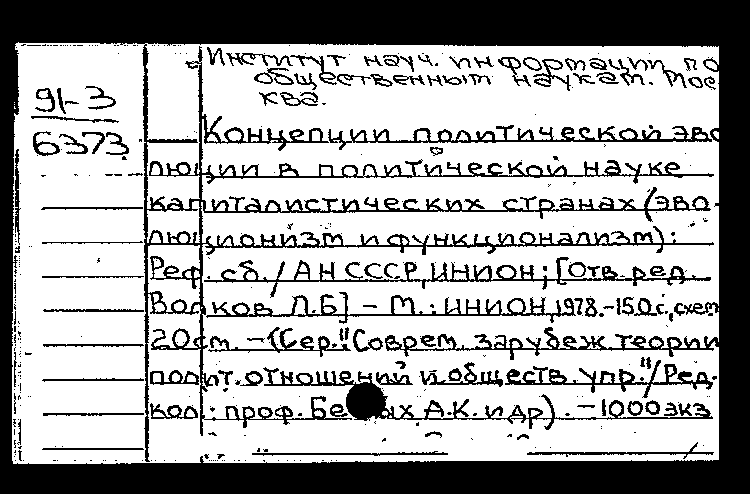 Институт науч. информации по
общественным наукам. Мос
ква.
91-3
6373
Концепции политической эво
люции в политической науке
капиталистических странах (эво-
люционизм и функционализм):
Реф. сб. / АН СССР, ИНИОН; [Отв. ред.
Волков Л.Б] – М.: ИНИОН, 1978. – 150 с., схем
20 см. – (Сер. "Соврем. зарубеж. теории
полит. отношений и обществ. упр." / Ред.
кол.: проф. А.К. и др). – 1000 экз